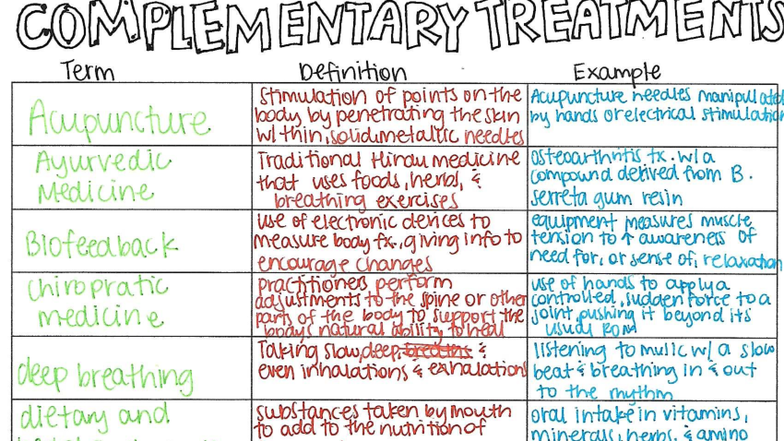 COMPLEMENTARY TREATMENTS
Term Definition Example
Acupuncture
Stimulation of points on the
body by penetrating the skin
w/ thin, solid, metallic needles
Acupuncture needles manipulated
by hands or electrical stimulation
Ayurvedic
Medicine
Traditional Hindu medicine
that uses foods, herbs, &
breathing exercises
osteoarthritis tx. w/ a
compound derived from B.
serreta gum resin
Biofeedback
use of electronic devices to
measure body fx., giving info to
encourage changes
equipment measures muscle
tension to ↑ awareness of
need for, or sense of, relaxation
Chiropratic
medicine
practitioners perform
adjustments to the spine or other
parts of the body to support the
body's natural ability to heal
use of hands to apply a
controlled, sudden force to a
joint, pushing it beyond its
usual ROM
deep breathing
Taking slow, deep, breaths &
even inhalations & exhalations
listening to music w/ a slow
beat & breathing in & out
to the rhythm
dietary and
substances taken by mouth
to add to the nutrition of
oral intake in vitamins,
minerals, herbs, & amino